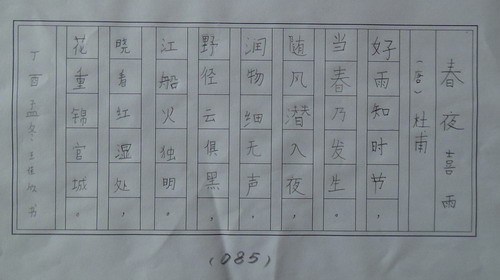 春夜喜雨
(唐) 杜甫
好雨知时节，
当春乃发生。
随风潜入夜，
润物细无声。
野径云俱黑，
江船火独明。
晓看红湿处，
花重锦官城。
丁酉孟冬王书
(085)